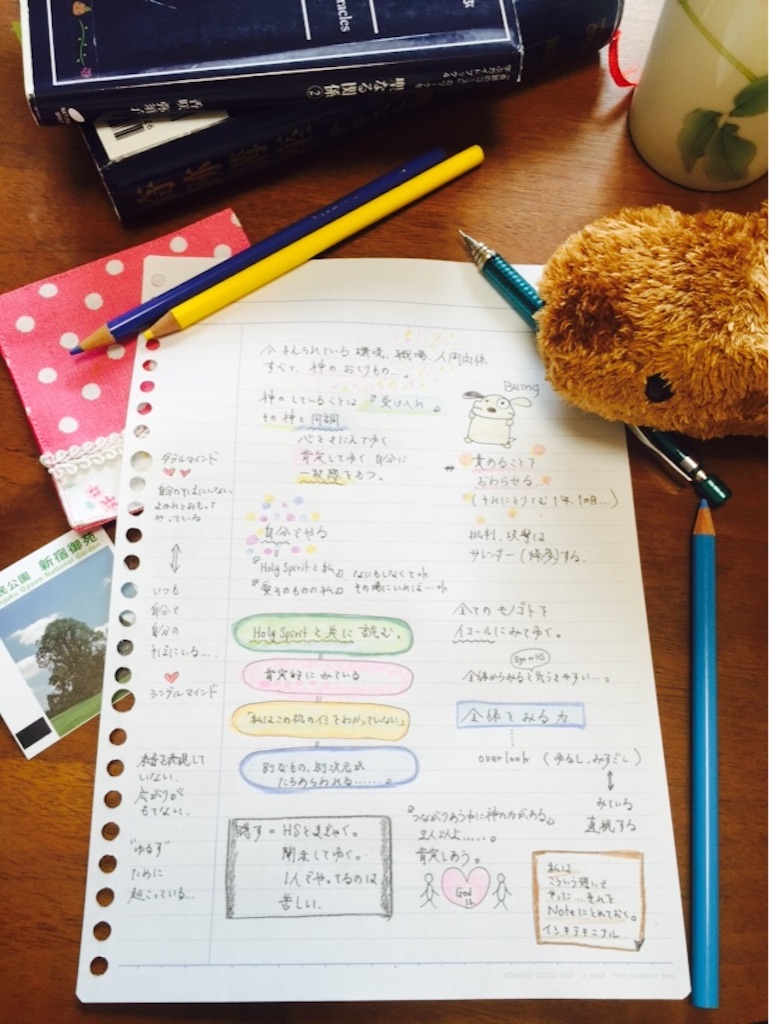 racles
香咲弥須子
聖なる関係②
学ぶガイドブック4
奇跡講座
民公園 新宿御苑
juku Gyoen National Garden
今 与えられている 環境、職場、人間関係
すべて、神の おくりもの...
神の していることは 『受け入れ』
その神と 同調
心を そこにんでゆく
肯定してゆく 自分に
一致感をもつ。
Being
責めることを
おわらせる...
(それにとりくむ 1年、1日目...)
批判、攻撃は
サレンダー(降参)する。
ダブルマインド
自分のそばにいない。
よかれとおもって
やっている
いつも
自分で
自分の
そばにいる...
シングルマインド
自分でやる
『Holy Spiritと私』 なにもしなくてok
『愛そのものの私』 その場にいれば...ok
Holy Spiritと共に 読む。
肯定的に みている
「私はこの机のイミをわかっていない」
別なもの、別次元が
たちあらわれる......。
全ての モノゴトを
イコールにみてゆく。
Ego or HS
全体からみると 気づきやすい...。
全体をみる力
overlook (ゆるし、みすごし)
みている
直視する
本音を表現して
いない。
広がりが
もてない。
"ゆるす"
ために
起こっている...
隠す = HSをまぎゃく。
開示してゆく。
1人でやってるのは
苦しい。
『つながりあう中に神の力がある』
2人以上......
肯定しあう。
God is
私は
こういう想いで
やった...それを
Noteにとめておく。